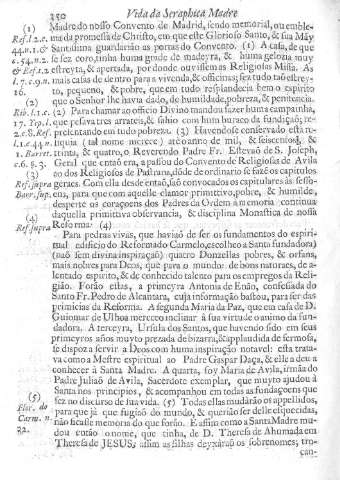 350 Vida da Seraphica Madre
(1) Madre do nosso Convento de Madrid, sendo memorial, ou emble-
Ref.l.2.c. ma da promessa de Christo, em que este Glorioso Santo, & sua Mãy
44.n.1.& Santissima guardarião as portas do Convento. (1) A casa, de que
c.54.n.2. se fez coro, tinha huma grade de madeyra, & huma gelosia muy
& Ref.t.2 estreyta, & apertada, por donde ouvissem os Religiosas Missa. As
l.7.c.9.n. mais casas de dentro para a vivenda, & officinas; seu tudo taõ estrey-
16. to, pequeno, & pobre, que em tudo resplandecia bem o espirito
(2) que o Senhor lhe havia dado, de humildade, pobreza, & penitencia.
Rib. l.2.c. (2) Para chamar ao officio Divino mandou fazer huma campainha,
17. Yep. l. que pesava tres arrates, & sahio com hum buraco da fundiçaõ; re-
2.c.8. Ref. prezentando em tudo pobreza. (3) Havendose conservado esta re-
l.1.c.44.n liquia (tal nome merece) até o anno de mil, & seiscentos, &
1. Barret. trinta, & quatro, o Reverendo Padre Fr. Estevaõ de S. Joseph
c.6. §.3. Geral que entaõ era, a passou do Convento de Religiosas de Avila
(3) ao dos Religiosos de Pastrana, dõde de ordinario se fazē os capitulos
Ref. supra geraes. Com ella desde entaõ, saõ convocados os capitulares ás sesso-
Barr. sup. ens, para que com aquelle clamor primitivo, pobre, & humilde,
desperte os coraçoens dos Padres da Ordem á memoria continua
(4) daquella primitiva observancia, & disciplina Monastica de nossa
Ref. supra Reforma. (4)
Para pedras vivas, que haviaõ de ser os fundamentos do espiri-
tual edificio do Reformado Carmelo, escolheo a Santa fundadora)
(naõ sem divina inspiraçaõ) quatro Donzellas pobres, & orfans,
mais nobres para Deos, que para o mundo: de bons naturaes, de a-
lentado espirito, & de conhecido talento para os empregos da Reli-
gião. Foraõ estas, a primeyra Antonia de Enâo, confessada do
Santo Fr. Pedro de Alcantara, cuja informaçaõ bastou, para ser das
primicias da Reforma. A segunda Maria da Paz, que em casa de D.
Guiomar de Ulhoa mereceo inclinar á sua virtude o animo da fun-
dadora. A terceyra, Ursula dos Santos, que havendo sido em seus
primeyros años muyto prezada de bizarra, & applaudida de fermosa,
se dispoz a servir a Deos com huma inspiração notavel: esta trata-
va como a Mestre espiritual ao Padre Gaspar Daça, & elle a deu a
conhecer á Santa Madre. A quarta, foy Maria de Avila, irmãa do
Padre Juliaõ de Avila, Sacerdote exemplar, que muyto ajudou á
Santa nos principios, & acompanhou em todas as fundaçoens que
(5) fez no discurso de sua vida. (5) Todas ellas mudarão os appellidos,
Flor. do para que já que fugiaõ do mundo, & queriaõ ser delle esquecidas,
Carm. n. não ficasse memoria do que foraõ. E assim como a Santa Madre mu-
32. dou entaõ o nome, que tinha, de D. Theresa de Ahumada em
Theresa de JESUS, assim as filhas deyxáraõ os sobrenomes, tro-
can-